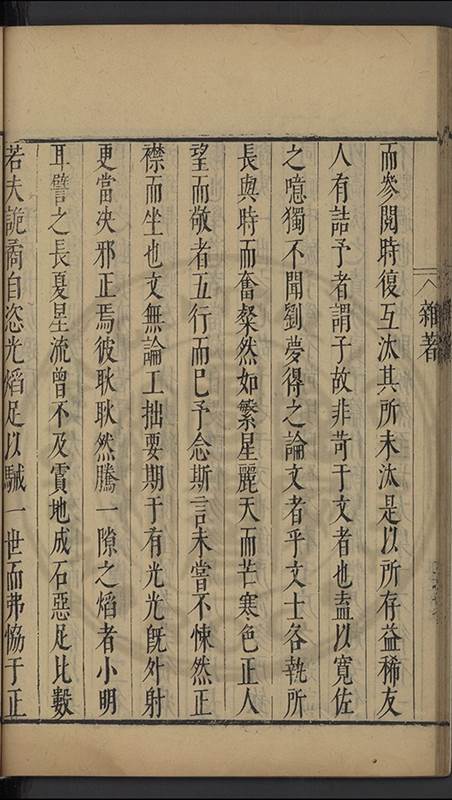 雜著
而參閱時復互汰其所未汰是以所存益稀友
人有詰予者謂子故非苛于文者也盍以寬佐
之噫獨不聞劉夢得之論文者乎文士各執所
長與時而奮粲然如繁星麗天而芒寒色正人
望而敬者五行而巳予念斯言未嘗不悚然正
襟而坐也文無論工拙要期于有光光旣外射
更當决邪正焉彼耿耿然騰一隙之熖者小明
耳譬之長夏星流曾不及霣地成石惡足比數
若夫詭矞自恣光熖足以駴一世而弗恊于正